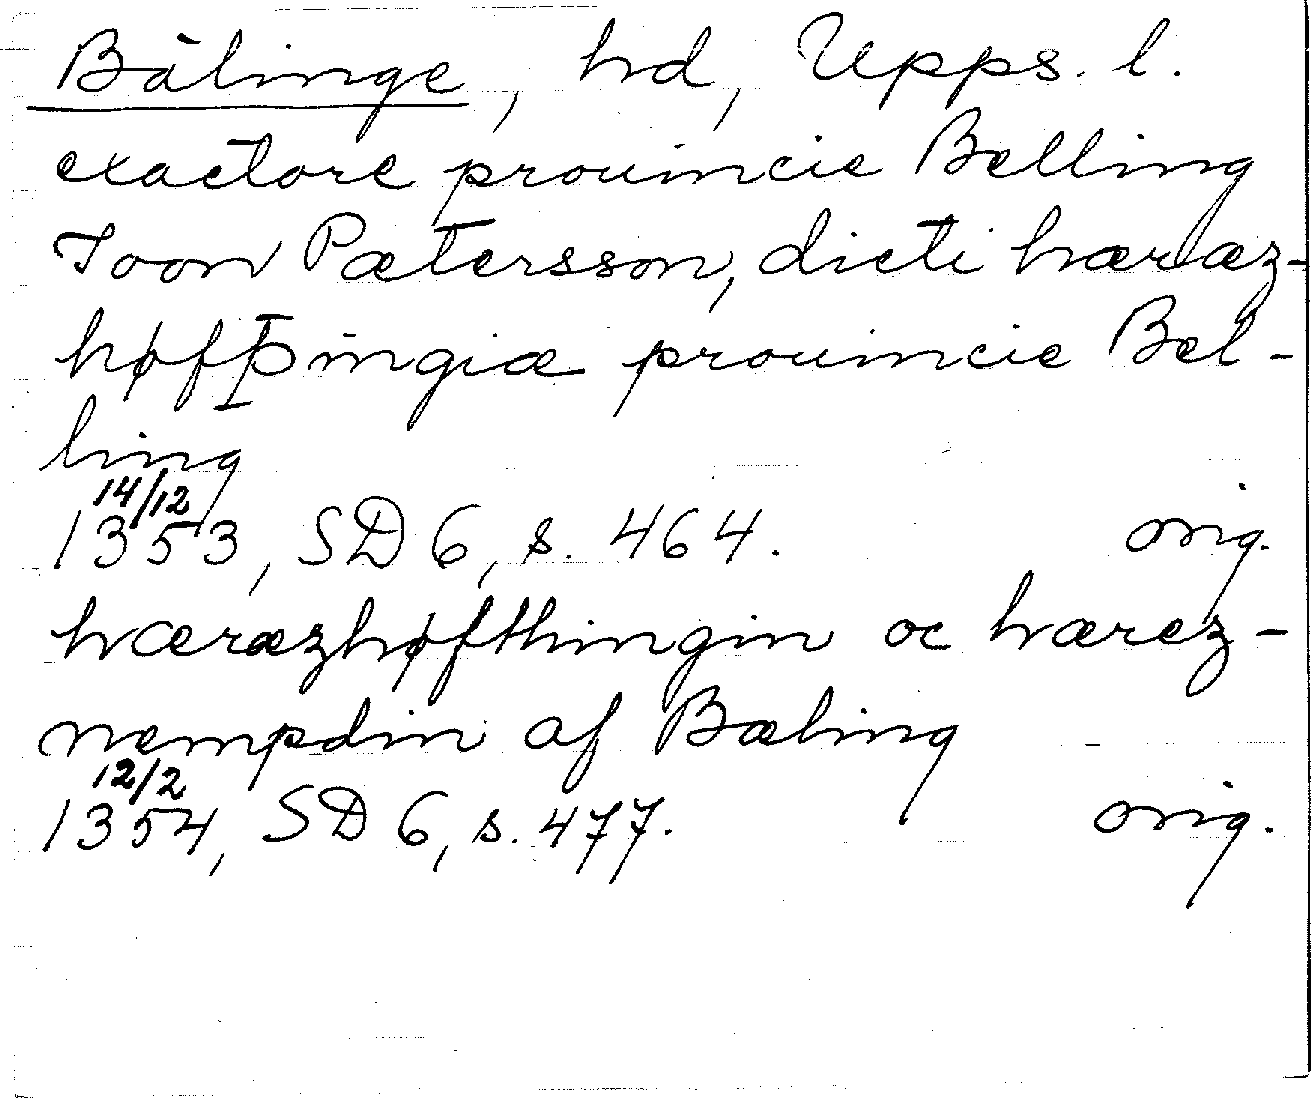 Bälinge, hd, Upps. l.
exactore prouincie Belling
Joon Pætersson, dicti hæræz-
høffþingiæ prouincie Bel-
ling
14/12
1353, SD 6, s. 464. orig.
hæræzhøfthingin oc hærez-
nempdin af Bæling
12/2
1354, SD 6, s. 477. orig.